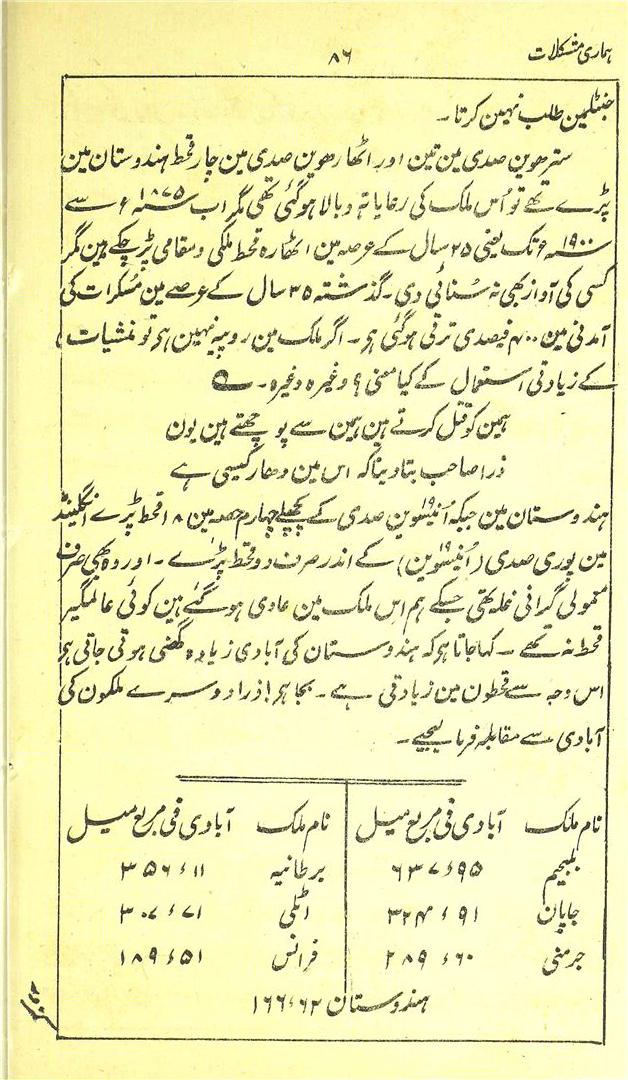 ہماری مشکلات ۸۶
جنٹلمین طلب نہین کرتا ۔
سترھوین صدی مین تین اور اٹھارھوین صدی مین چار قحط ہندوستان مین
پڑے تھے تو اُس ملک کی رعایا تہ و بالا ہوگئی تھی مگر اب سنہ ۱۸۷۵ء سے
سنہ ۱۹۰۰ء تک یعنی ۲۵ سال کے عرصہ مین اٹھارہ قحط ملکی و مقامی پڑ چکے ہین مگر
کسی کی آواز بھی نہ سُنائی دی ۔ گذشتہ ۳۵ سال کے عرصے مین مُسکرات کی
آمدنی مین ۴۰۰ فیصدی ترقی ہوگئی ہی ۔ اگر ملک مین روپیہ نہین ہی تو منشیات
کے زیادتی استعمال کے کیا معنی ؟ وغیرہ وغیرہ ۔ ؎
ہمین کو قتل کرتے ہین ہمین سے پوچھتے ہین یون
ذرا صاحب بتا دینا کہ اس مین دھار کیسی ہے
ہندوستان مین جبکہ اُنیسوین ۱۹ صدی کے پچھلے چہارم حصہ مین ۱۸ قحط پڑے انگلینڈ
مین پوری صدی (اُنیسوین ۱۹) کے اندر صرف دو قحط پڑے ۔ اور وہ بھی صرف
معمولی گرانی غلہ تھی جسکے ہم اس ملک مین عادی ہوگئے ہین کوئی عالمگیر
قحط نہ تھے ۔ کہا جاتا ہی کہ ہندوستان کی آبادی زیادہ گھنی ہوتی جاتی ہی
اس وجہ سے قحطون مین زیادتی ہے ۔ بجا ہی ! ذرا دوسرے ملکون کی
آبادی سے مقابلہ فرما لیجیے ۔
نام ملک آبادی فی مربع میل نام ملک آبادی فی مربع میل
بلجیم ۶۳۷ء۹۵ برطانیہ ۳۵۶ء۱۱
جاپان ۳۲۴ء۹۱ اٹلی ۳۰۷ء۷۱
جرمنی ۲۸۹ء۶۰ فرانس ۱۸۹ء۵۱
ہندوستان ۱۶۶ء۶۲